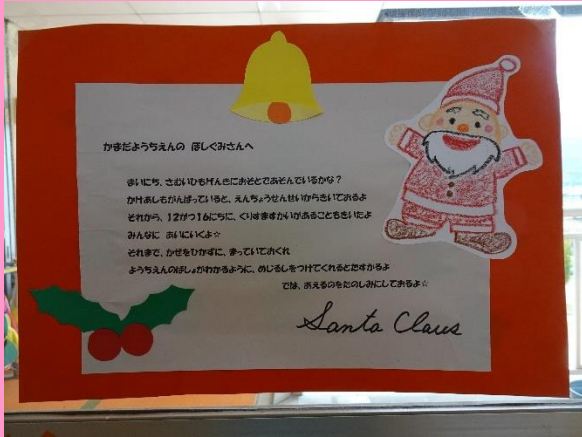 かまだようちえんの ほしぐみさんへ
まいにち、さむいひもげんきにおそとであそんでいるかな？
かけあしもがんばっていると、えんちょうせんせいからきいておるよ
それから、12がつ16にちに、くりすますかいがあることもきいたよ
みんなに あいにいくよ☆
それまで、かぜをひかずに、まっていておくれ
ようちえんのばしょがわかるように、めじるしをつけてくれるとたすかるよ
では、あえるのをたのしみにしておるよ☆
Santa Claus